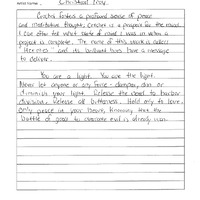 Christmas Envy.
Crochet fosters a profound sense of peace
and meditative thought. Crochet is a prayer for the mind.
I can often tell what state of mind I was in when a
project is complete. The name of this stitch is called
"Hermes" and its brilliant hues have a message
to deliver.
You are a light. You are the light.
Never let anyone or any force dampen, dim or
diminish your light. Release the need to harbor
divisions. Release all bitterness. Hold only to love,
only peace in your heart, knowing that the
battle of good to overcome evil is already won.